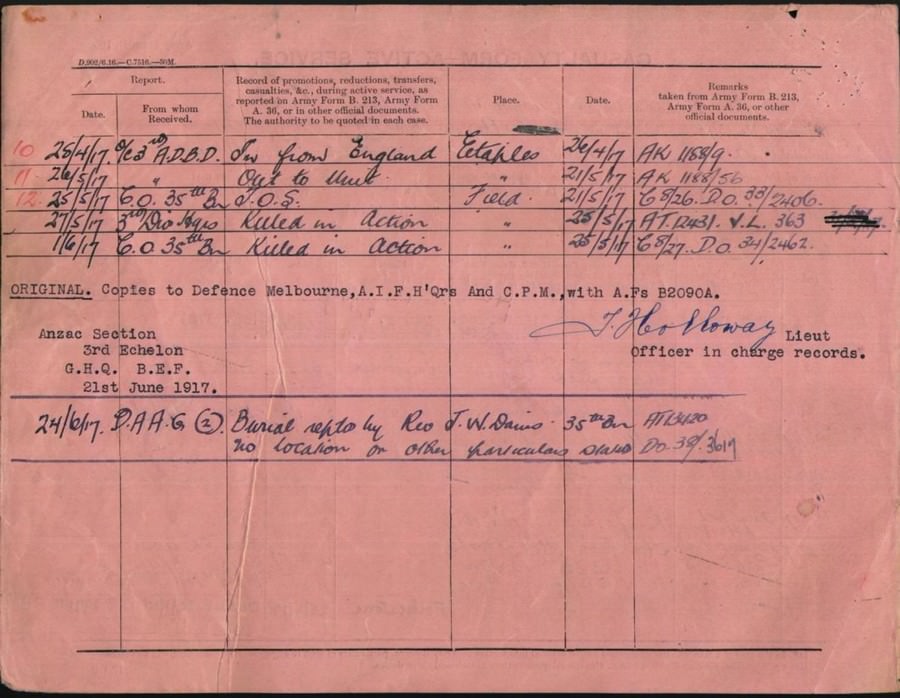 D.902/6.16.—C.7516.—50M.
Report.
Record of promotions, reductions, transfers,
casualties, &c., during active service, as
reported on Army Form B. 213, Army Form
A. 36, or in other official documents.
The authority to be quoted in each case.
Place.
Date.
Remarks
taken from Army Form B. 213,
Army Form A. 36, or other
official documents.
Date.
From whom
Received.
10 25/4/17. O/c 3rd A.D.B.D. In from England Etaples 26/4/17 AK 1188/9.
11. 26/5/17 " Out to Unit " 21/5/17 AK 1188/56
12. 25/5/17 C.O. 35th Bn T.O.S. Field. 21/5/17 C5/26. D.O. 33/2406.
27/5/17 3rd Div Hqrs Killed in Action " 25/5/17 A.T. 12431. V.L. 363
1/6/17 C.O. 35th Bn Killed in Action " 25/5/17 C5/27. D.O. 34/2462.
ORIGINAL. Copies to Defence Melbourne,A.I.F.H'Qrs And C.P.M.,with A.Fs B2090A.
Holloway Lieut
Officer in charge records.
Anzac Section
3rd Echelon
G.H.Q. B.E.F.
21st June 1917.
24/6/17. D.A A.G (2). Burial reptd by Rev J. W. 35th Bn AT13420
no location or other particulars stated Do. 38/3619